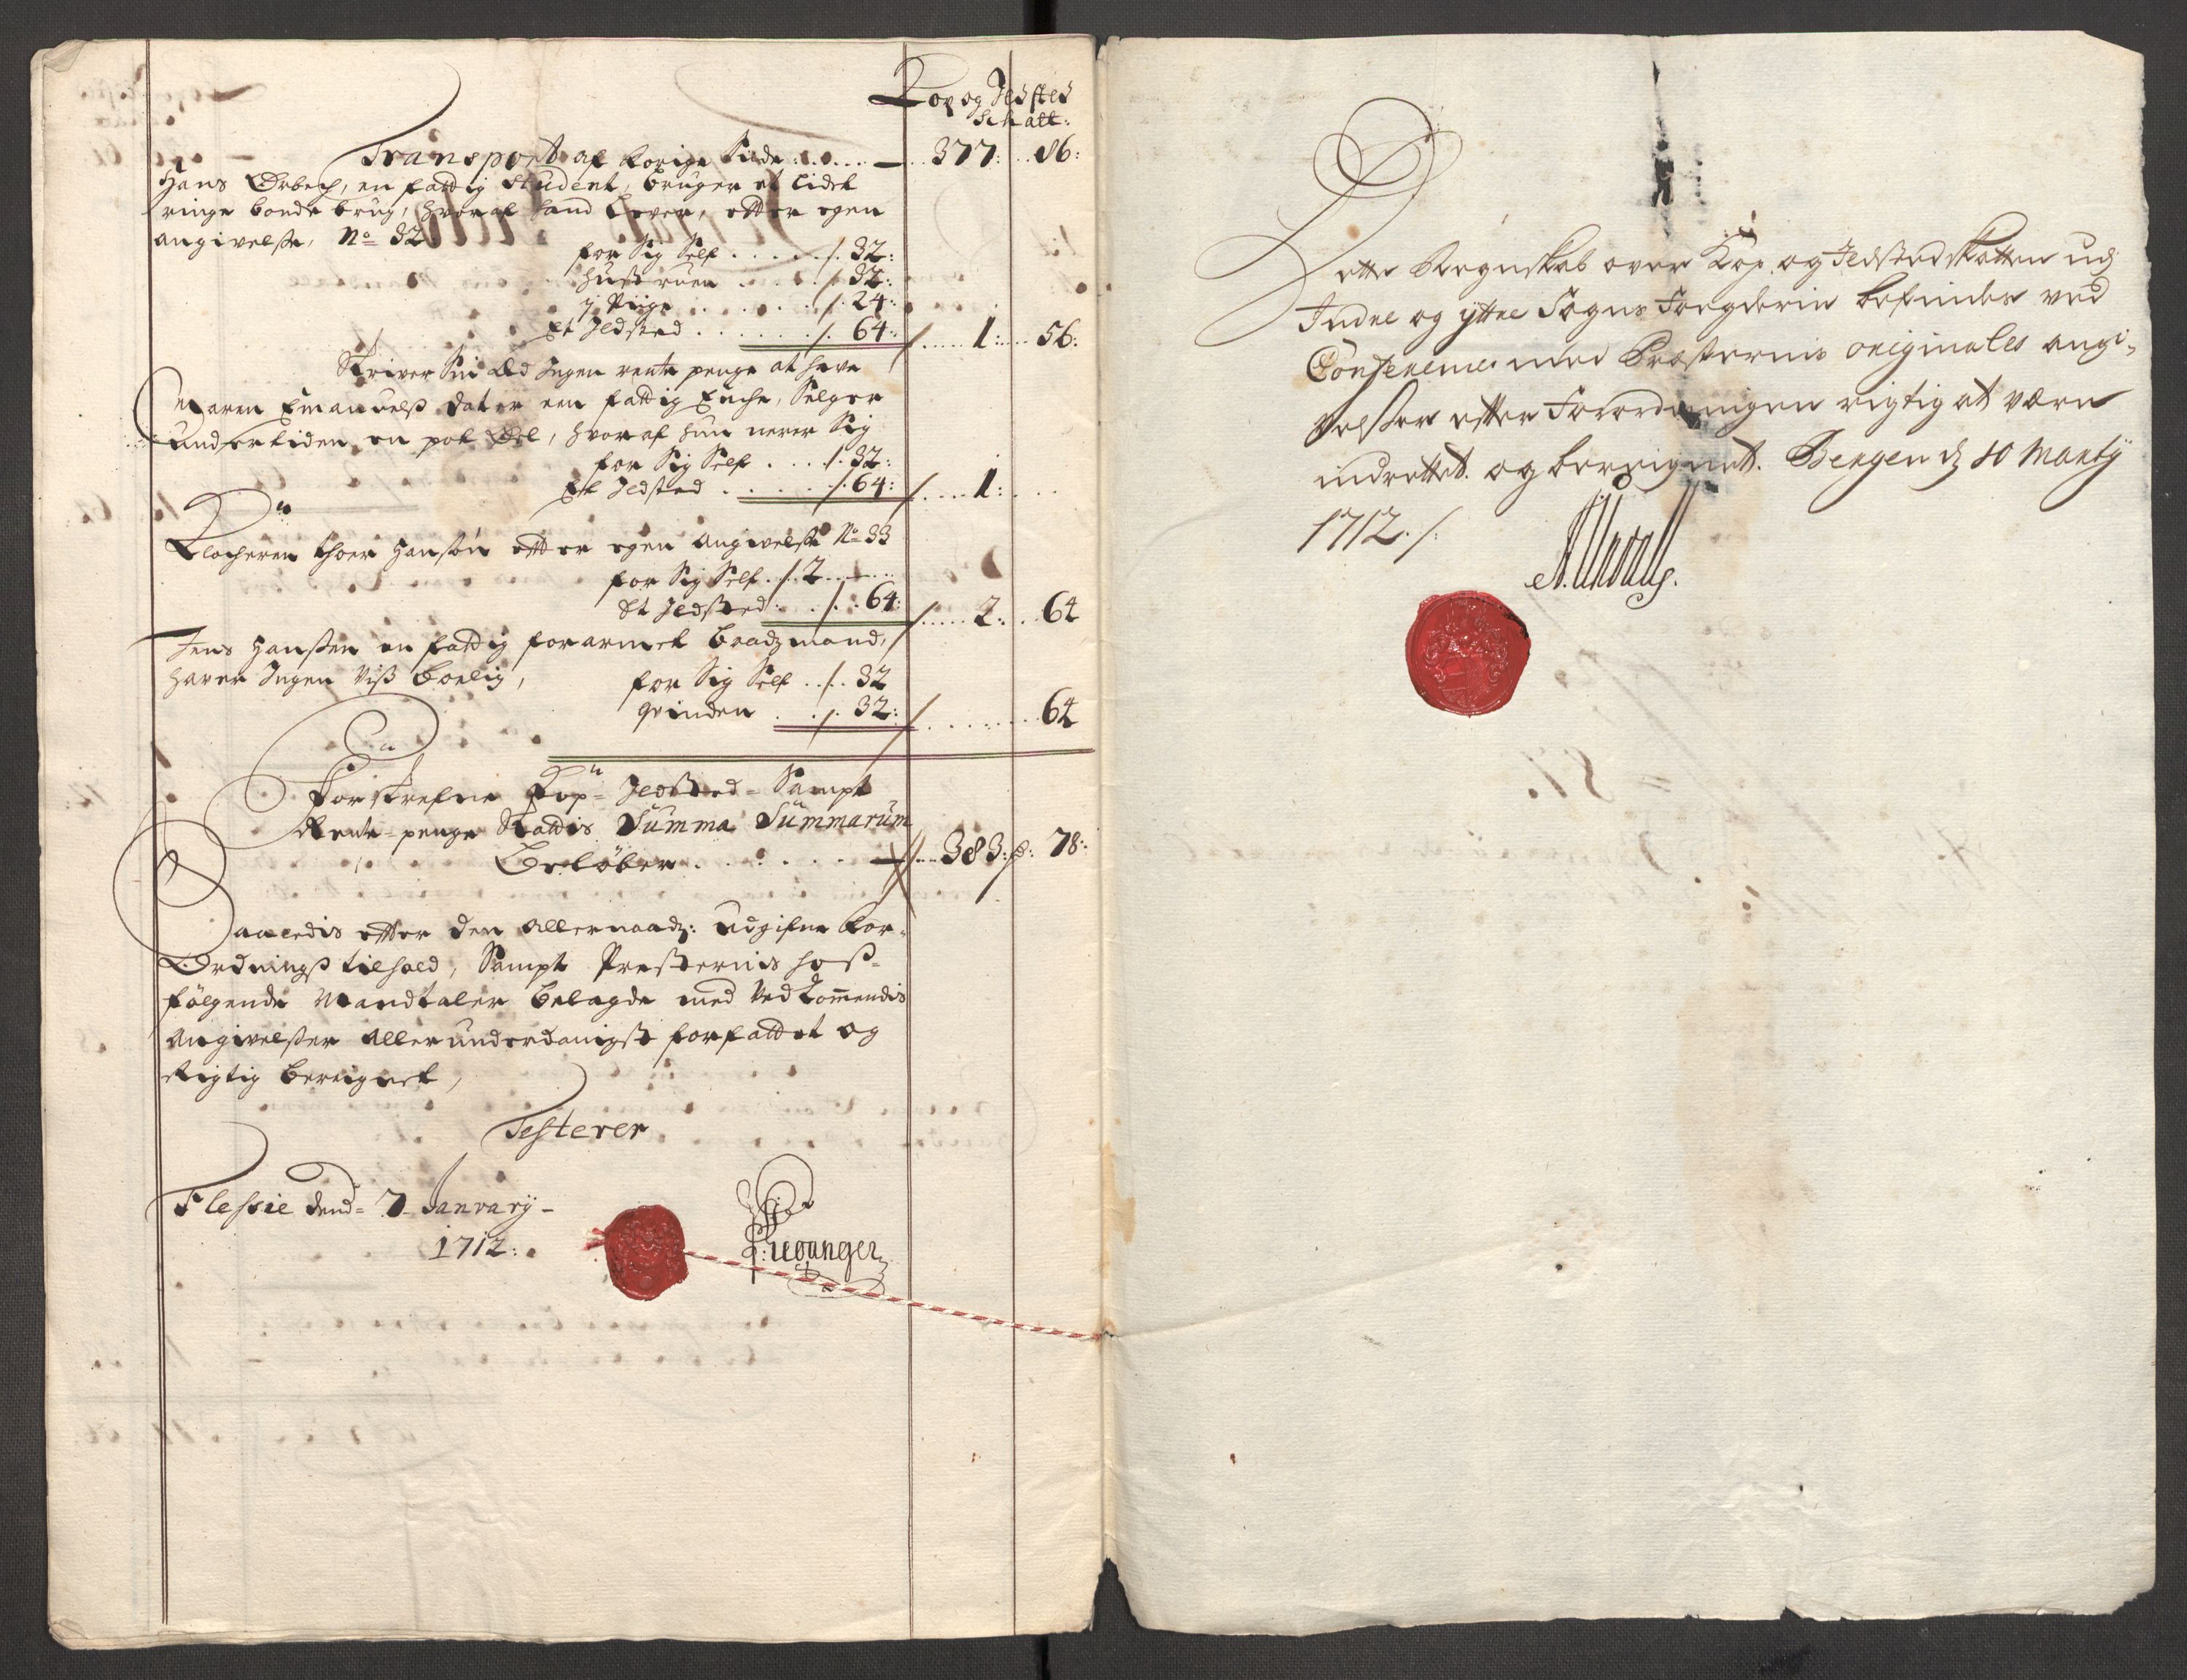 Kop og Ildsted
Schatt:
Transport af forige Siide . . . . . 377: . . 86:
Hans Ørbech, en fattig Student, bruger et lidet
ringe bonde brug, hvoraf hand lever, etter egen
angivelße, No 32
for Sig Self . . . . . /. 32:
Hustruen . . . . /. 32:
1 Piige . . . . . . /. 24:
Et Ildsted . . . . . . /. 64: / . . . . 1: . . . 56:
Skriver Sig Ingen rente penge at have
Maren Emanuelß dater een fattig Enche, Selger
undertiden en pot Øel, hvoraf hun nerer Sig
for Sig Self . . . /. 32:
Et Ildsted . . . . . /. 64: / . . . . 1: . . .
Klocheren Thoer Hansøn etter egen Angivelße No 33
for Sig Self . /. 2 . . . . .
Et Ildsted . . . /. . 64: / . . . . 2: . . 64
Jens Hanßen en fattig forarmet baadzmand,
haver Ingen Viß boelig,
for Sig Self . . /. . 32
qvinden . . . /. 32: / . . . . . . . 64
Forskrefne Kop- Ildsted- Sampt
Rente-penge Skattis Summa Summarum
Beløber . . . . . . . 383: β: 78:
Saaledis etter den Allernaadz: udgifne For-
Ordningß tilhold, Sampt Presternis hoß-
følgende Mandtaler belagde med Vedkommendis
Angivelßer Allerunderdanigst forfattet og
Rigtig bereignet,
Testerer
Flessie dend- 7 January-
1712:
Dette Regnskab over Kop og Ildsted skatten udj
Indre og yttre Sogns Foegderie befindes ved
Confererme med Presternis originales angi-
velßer etter Forordningen rigtig at være
indrettet og bereignet. Bergen dj 10 Martij
1712. /.